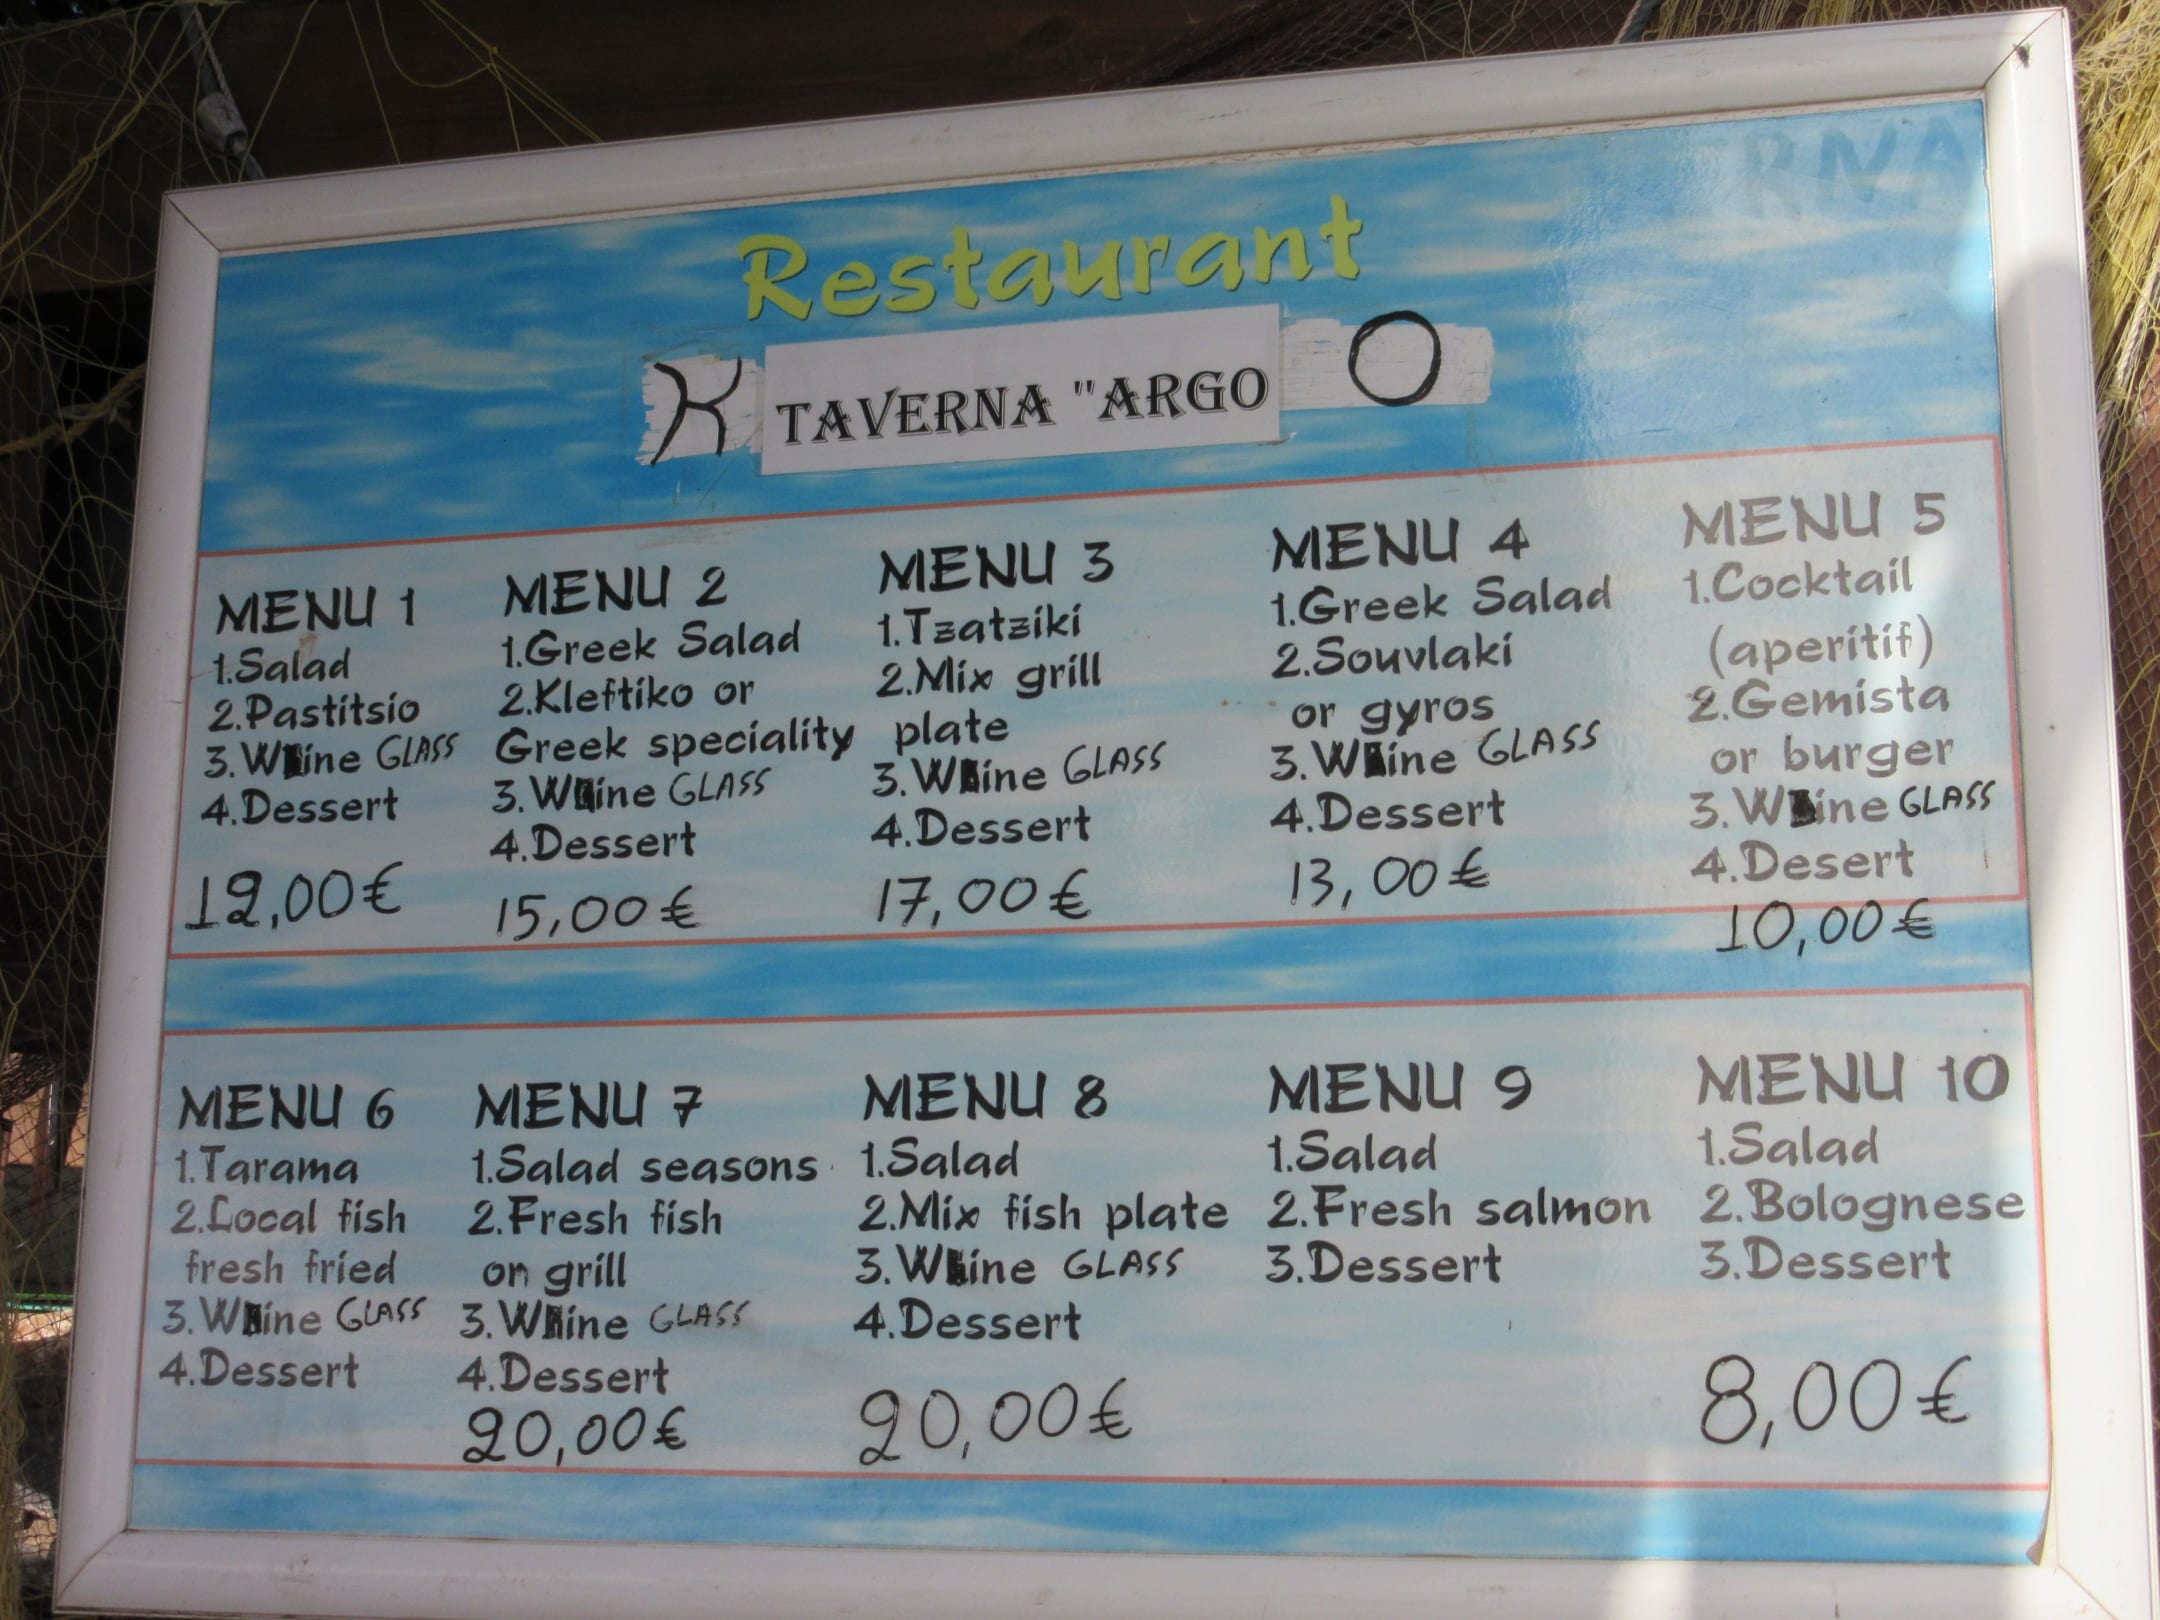 Restaurant
K TAVERNA "ARGO O
MENU 1
1.Salad
2.Pastitsio
3.Wine GLASS
4.Dessert
12,00€
MENU 2
1.Greek Salad
2.Kleftiko or
Greek speciality
3.Wine GLASS
4.Dessert
15,00€
MENU 3
1.Tzatziki
2.Mix grill
plate
3.Wine GLASS
4.Dessert
17,00€
MENU 4
1.Greek Salad
2.Souvlaki
or gyros
3.Wine GLASS
4.Dessert
13,00€
MENU 5
1.Cocktail
(aperitif)
2.Gemista
or burger
3.Wine GLASS
4.Desert
10,00€
MENU 6
1.Tarama
2.Local fish
fresh fried
3.Wine GLASS
4.Dessert
MENU 7
1.Salad seasons
2.Fresh fish
on grill
3.Wine GLASS
4.Dessert
20,00€
MENU 8
1.Salad
2.Mix fish plate
3.Wine GLASS
4.Dessert
20,00€
MENU 9
1.Salad
2.Fresh salmon
3.Dessert
MENU 10
1.Salad
2.Bolognese
3.Dessert
8,00€